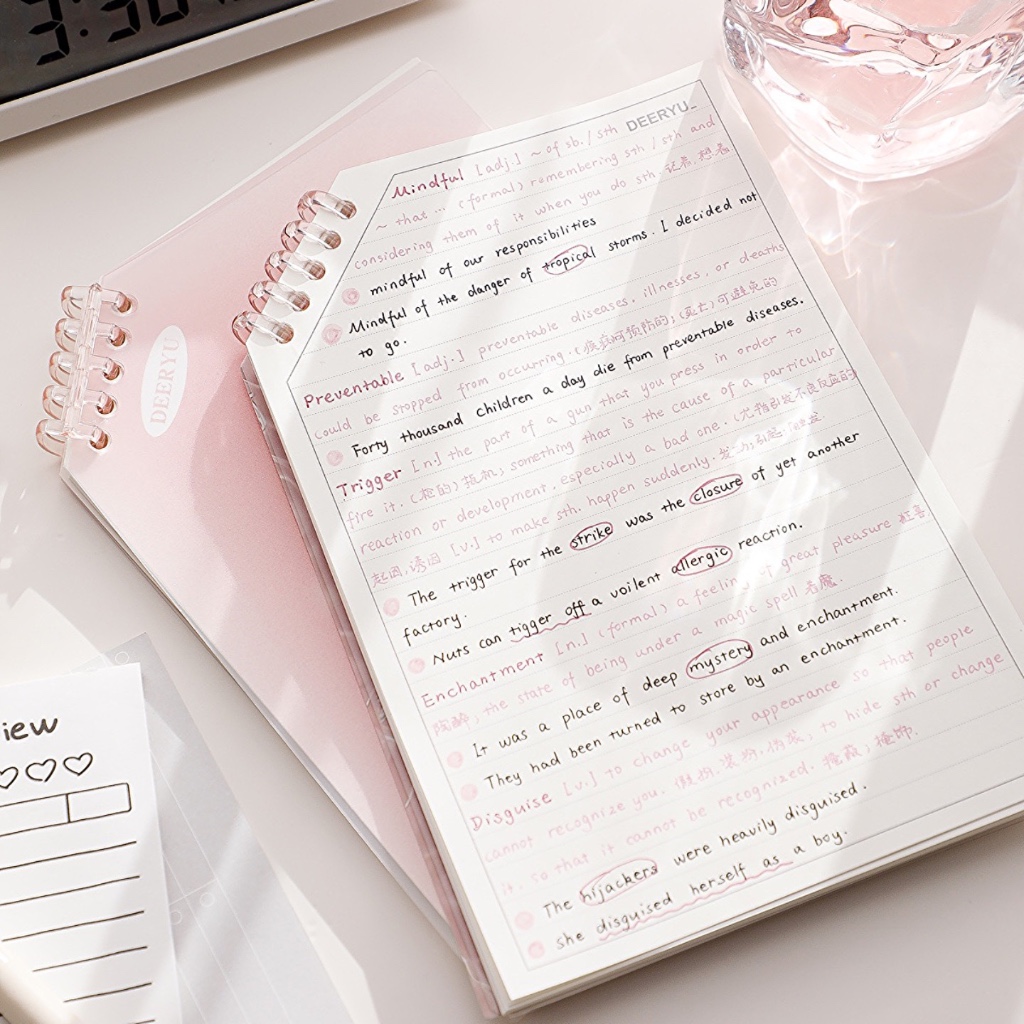 3:30
DEERYU_
Mindful [adj.] ~ of sb. / sth
~ that ... (formal) remembering sth / sth and
considering them of it when you do sth 记着,想着
mindful of our responsibilities
Mindful of the danger of tropical storms. I decided not
to go.
Preventable [adj.] preventable diseases, illnesses, or deaths
could be stopped from occurring. (疾病可预防的; (死亡) 可避免的
Forty thousand children a day die from preventable diseases.
Trigger [n.] the part of a gun that you press in order to
fire it. (枪的) 扳机; something that is the cause of a particular
reaction or development, especially a bad one. (尤指引发不良反应的
起因,诱因 [v.] to make sth. happen suddenly. 发动;引起;触发
The trigger for the strike was the closure of yet another
factory.
Nuts can tigger off a voilent allergic reaction.
Enchantment [n.] (formal) a feeling of great pleasure 狂喜
陶醉; the state of being under a magic spell 着魔.
It was a place of deep mystery and enchantment.
They had been turned to store by an enchantment.
Disguise [v.] to change your appearance so that people
cannot recognize you. 假扮,装扮,伪装; to hide sth or change
it, so that it cannot be recognized. 掩蔽; 掩饰.
The hijackers were heavily disguised.
she disguised herself as a boy.
DEERYU
iew